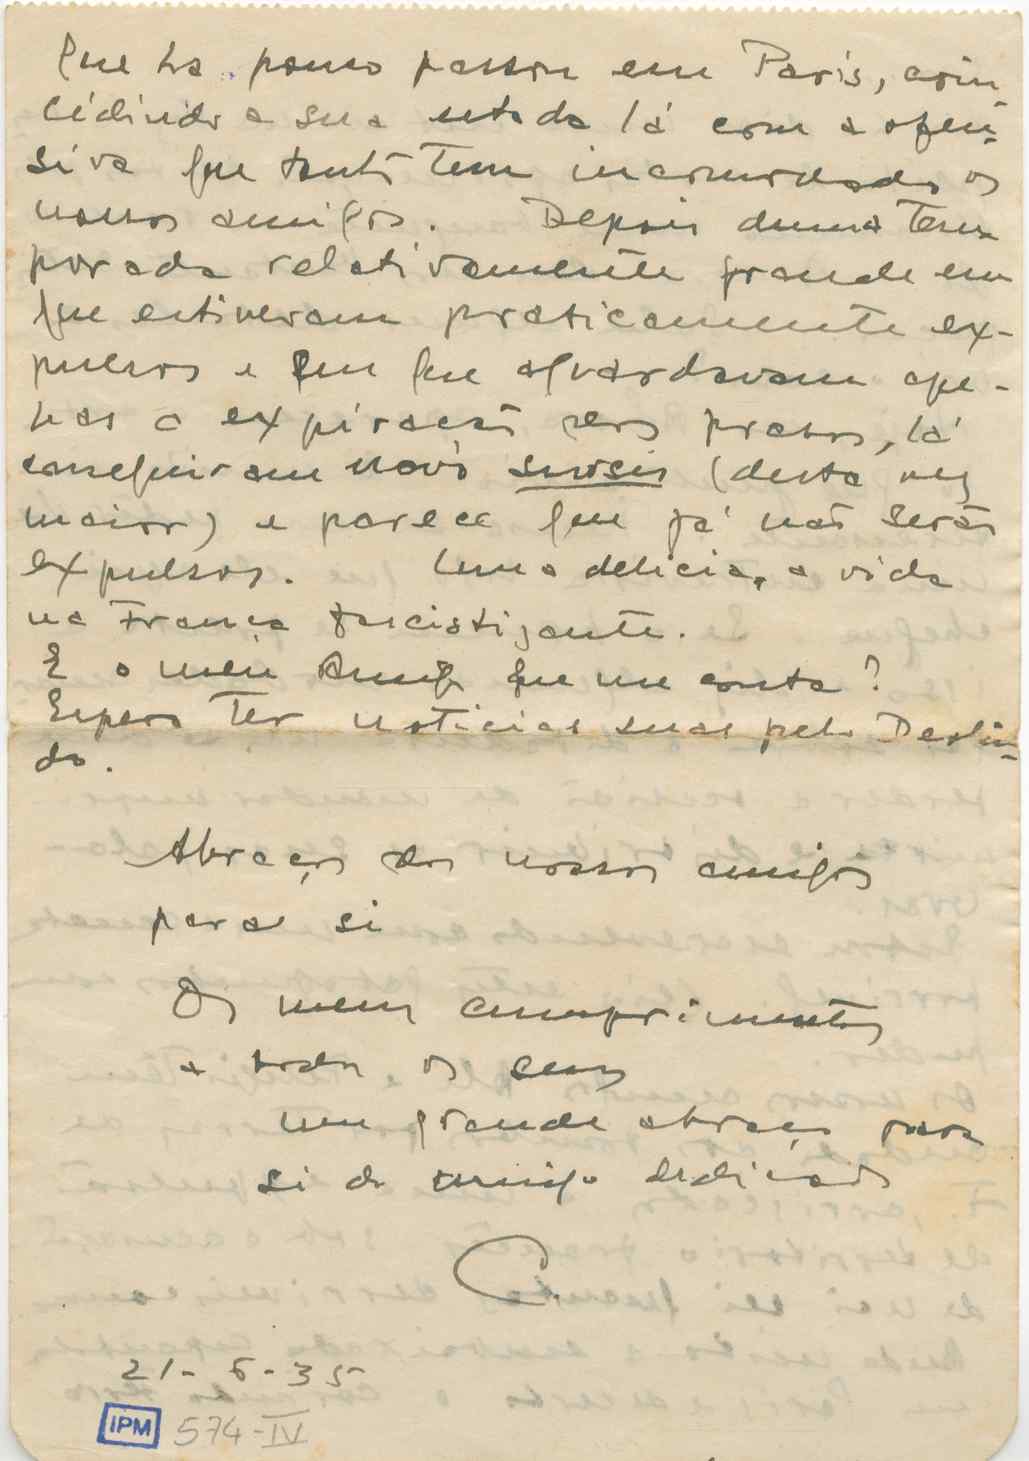 que ha pouco passou em Paris, coin-
cidindo a sua estada lá com a ofen-
siva que tanto tem incomodado os
nossos amigos. Depois duma tem-
porada relativamente grande em
que estiveram praticamente ex-
pulsos e em que aguardavam ape-
nas a expiração dos prazos, lá
conseguiram novo sursis (desta vez
maior) e parece que já não serão
expulsos. Uma delicia, a vida
na França fascistizante.
E o meu Amigo que me conta?
Espero ter noticias suas pelo Deolin-
do.
Abraços dos nossos amigos
para si
Os meus cumprimentos
a todos os seus
um grande abraço para
si do amigo dedicado
C.
21-6-35
IPM 574-IV